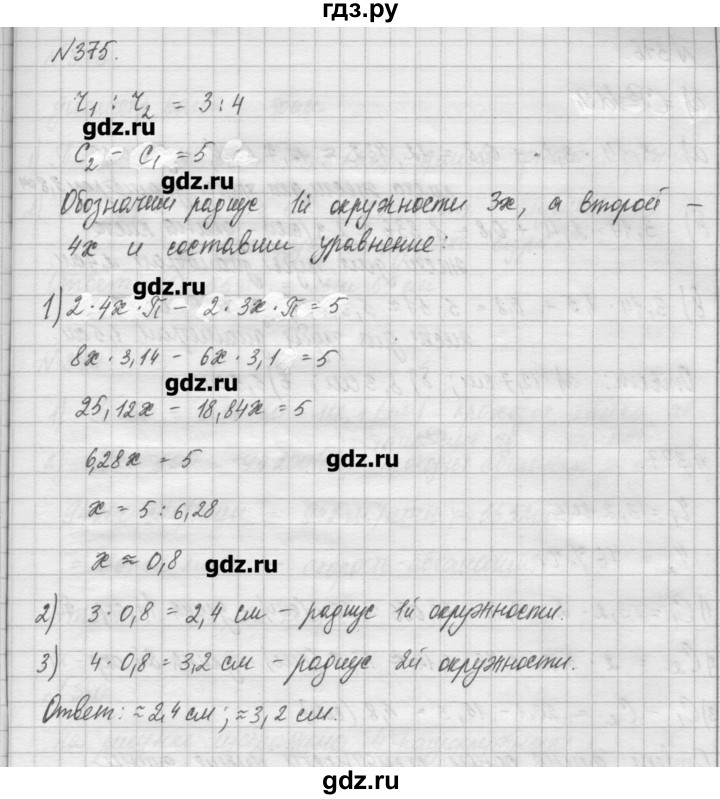 гдз.ру
№375.
r₁ : r₂ = 3 : 4
gdz.ru
C₂ - C₁ = 5
gdz.ru
Обозначим радиус 1й окружности 3x, а второй -
4x и составим уравнение:
gdz.ru
1) 2·4x·π - 2·3x·π = 5
8x · 3,14 - 6x · 3,1 = 5
gdz.ru
25,12x - 18,84x = 5
6,28x = 5
gdz.ru
x = 5 : 6,28
x ≈ 0,8
gdz.ru
2) 3 · 0,8 = 2,4 см - радиус 1й окружности.
3) 4 · 0,8 = 3,2 см - радиус 2й окружности.
Ответ: ≈ 2,4 см; ≈ 3,2 см.
gdz.ru